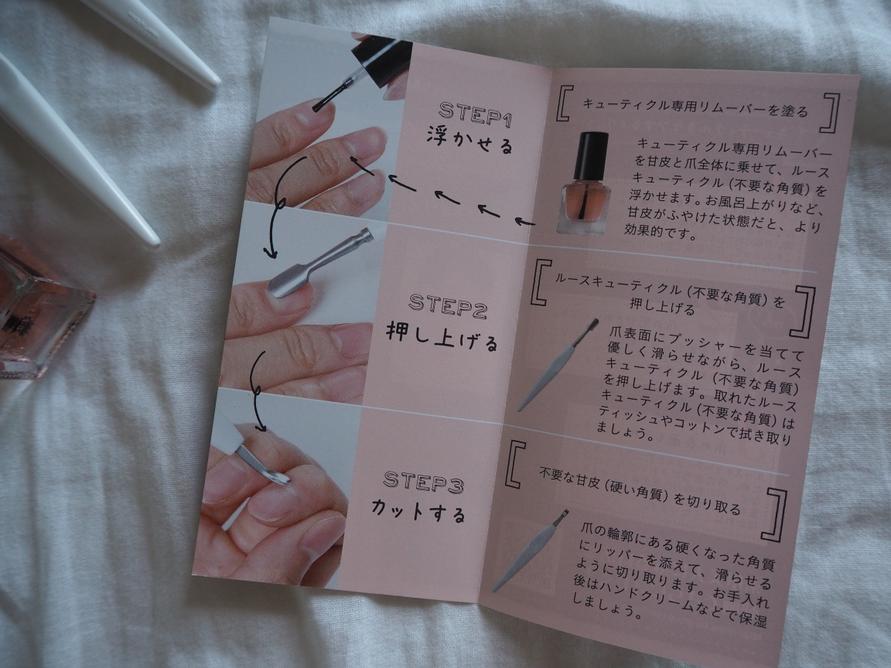 STEP1
浮かせる
キューティクル専用リムーバーを塗る
キューティクル専用リムーバー
を甘皮と爪全体に乗せて、ルース
キューティクル（不要な角質）を
浮かせます。お風呂上がりなど、
甘皮がふやけた状態だと、より
効果的です。
STEP2
押し上げる
ルースキューティクル（不要な角質）を
押し上げる
爪表面にプッシャーを当てて
優しく滑らせながら、ルース
キューティクル（不要な角質）
を押し上げます。取れたルース
キューティクル（不要な角質）は
ティッシュやコットンで拭き取り
ましょう。
STEP3
カットする
不要な甘皮（硬い角質）を切り取る
爪の輪郭にある硬くなった角質
にリッパーを添えて、滑らせる
ように切り取ります。お手入れ
後はハンドクリームなどで保湿
しましょう。